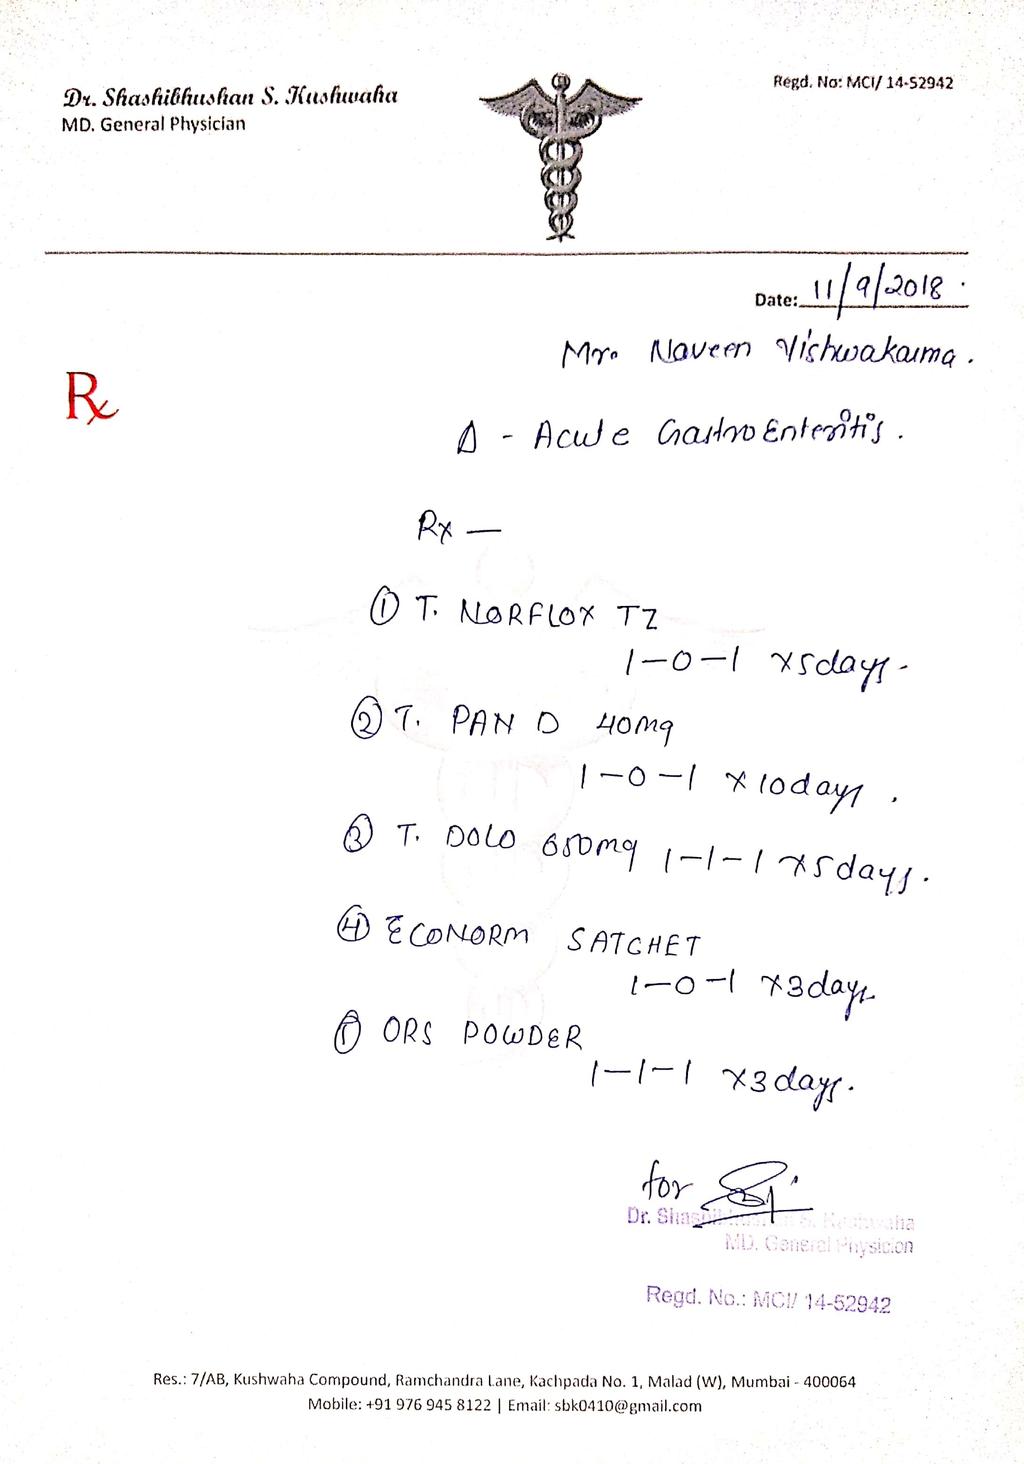 Dr. Shashibhushan S. Kushwaha
MD. General Physician
Regd. No: MCI/ 14-52942
Date: 11/9/2018.
Mr. Naveen Vishwakarma.
Rx
Δ - Acute GastroEnteritis.
Rx —
① T. NORFLOX TZ
1-0-1 x5days.
② T. PAN D 40mg
1-0-1 x10days.
③ T. DOLO 650mg 1-1-1 x5days.
④ ECONORM SATCHET
1-0-1 x3days
⑤ ORS POWDER
1-1-1 x3days.
for
Dr. Shashibhushan S. Kushwaha
MD. General Physician
Regd. No.: MCI/ 14-52942
Res.: 7/AB, Kushwaha Compound, Ramchandra Lane, Kachpada No. 1, Malad (W), Mumbai - 400064
Mobile: +91 976 945 8122 | Email: sbk0410@gmail.com